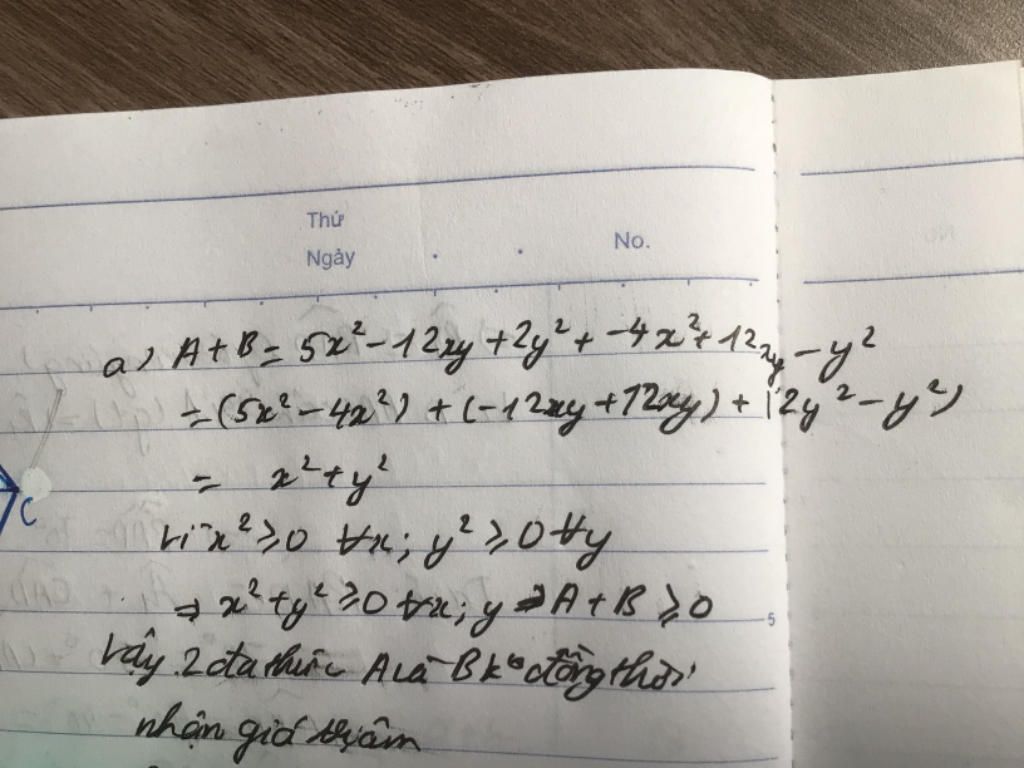 Thứ
Ngày
No.
a) A + B = 5x² - 12xy + 2y² + -4x² + 12xy - y²
= (5x² - 4x²) + (-12xy + 12xy) + (2y² - y²)
= x² + y²
C
Vì x² ≥ 0 ∀x; y² ≥ 0 ∀y
⇒ x² + y² ≥ 0 ∀x; y ⇒ A + B ≥ 0
5
Vậy 2 đa thức A và B kº đồng thời
nhận giá trị âm